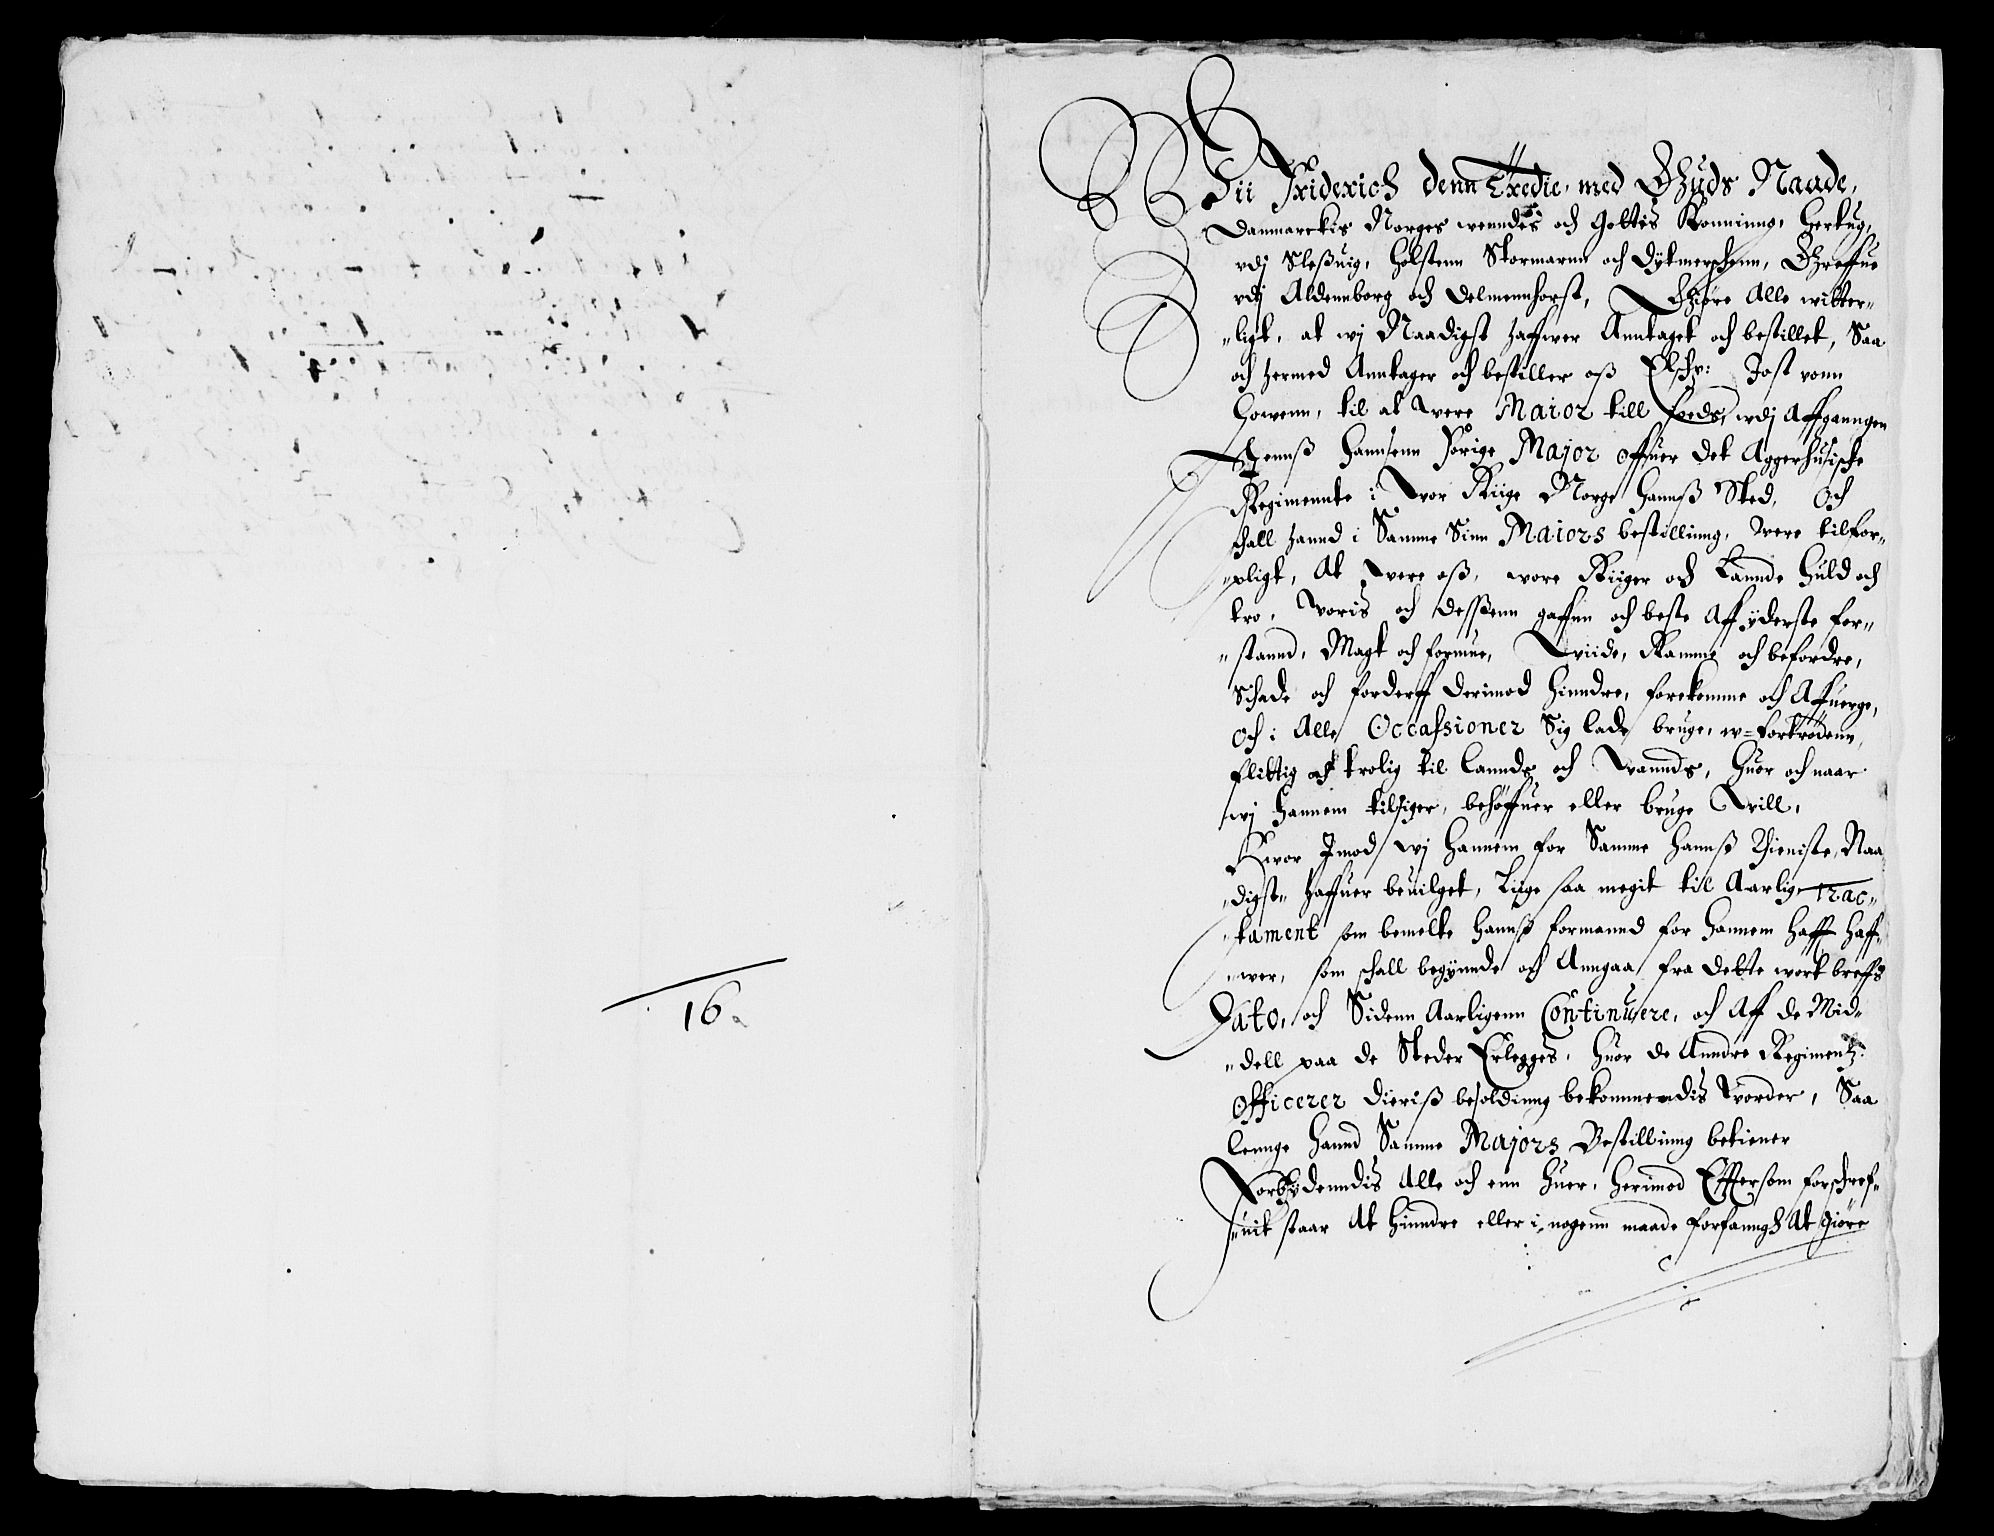 16.
Wii Friderich denn Tredie, med Guds Naade,
Danmarckis Norges wenndes och Gottis Konninng, Hertug,
vdj Sleßuig, Holstenn Stormarnn och Dytmerschenn, Greffue
vdj Aldennborg och Delmennhorst, Giöre Alle witter„
„ligt, at wj Naadigst haffwer Anntaget och bestillet, Saa
och hermed Anntager och bestiller oß Elsch: Jost vonn
Howenn, til at were Maior till foeds, wdj Affganngen
Jennß Hannsenn Forige Major offuer det Aggerhusiske
Regimennte i Wor Riige Norge Hannß Sted, Och
schall hannd i Samme Sinn Maiors bestillinng, were tilfor„
„pligt, At were oß, wore Riiger och Lannde Huld och
tro, Woris och desßenn gaffnn och beste Aff yderste for„
„stannd, Magt och formue, Wiide, Ramme och befordre,
Schade och forderff derimod hinndre, forekomme och Affuerge,
Och i Alle Occasioner Sig lade bruge, w=fortrödenn,
flittig och trolig til Lannds och Wannds, Huor och naar
wj Hannem tilsiger, behöffuer eller bruge Will,
Hwor Imod wj Hannem for Samme Hannß Thieniste, Naa
„digst„ haffuer beuilget, Liige saa megit til Aarlig Trac„
„tament som bemelte Hannß formannd for Hannem Hafft Haff„
„wer, som schall begynnde och Anngaa fra dette wort breffs
Dato, och Sidenn Aarligenn Continuere, och Aff de Mid„
„dell paa de Steder Erlegges, Huor de Anndre Regimentz
Officerer Dieriß besoldinng bekommendis worder, Saa
lennge Hannd Samme Majors Bestillinng betiener
Forbydenndis Alle och enn Huer, Herimod Efftersom forschref„
„uit staar At Hinndre eller i nogenn maade forfanngh At Giöre